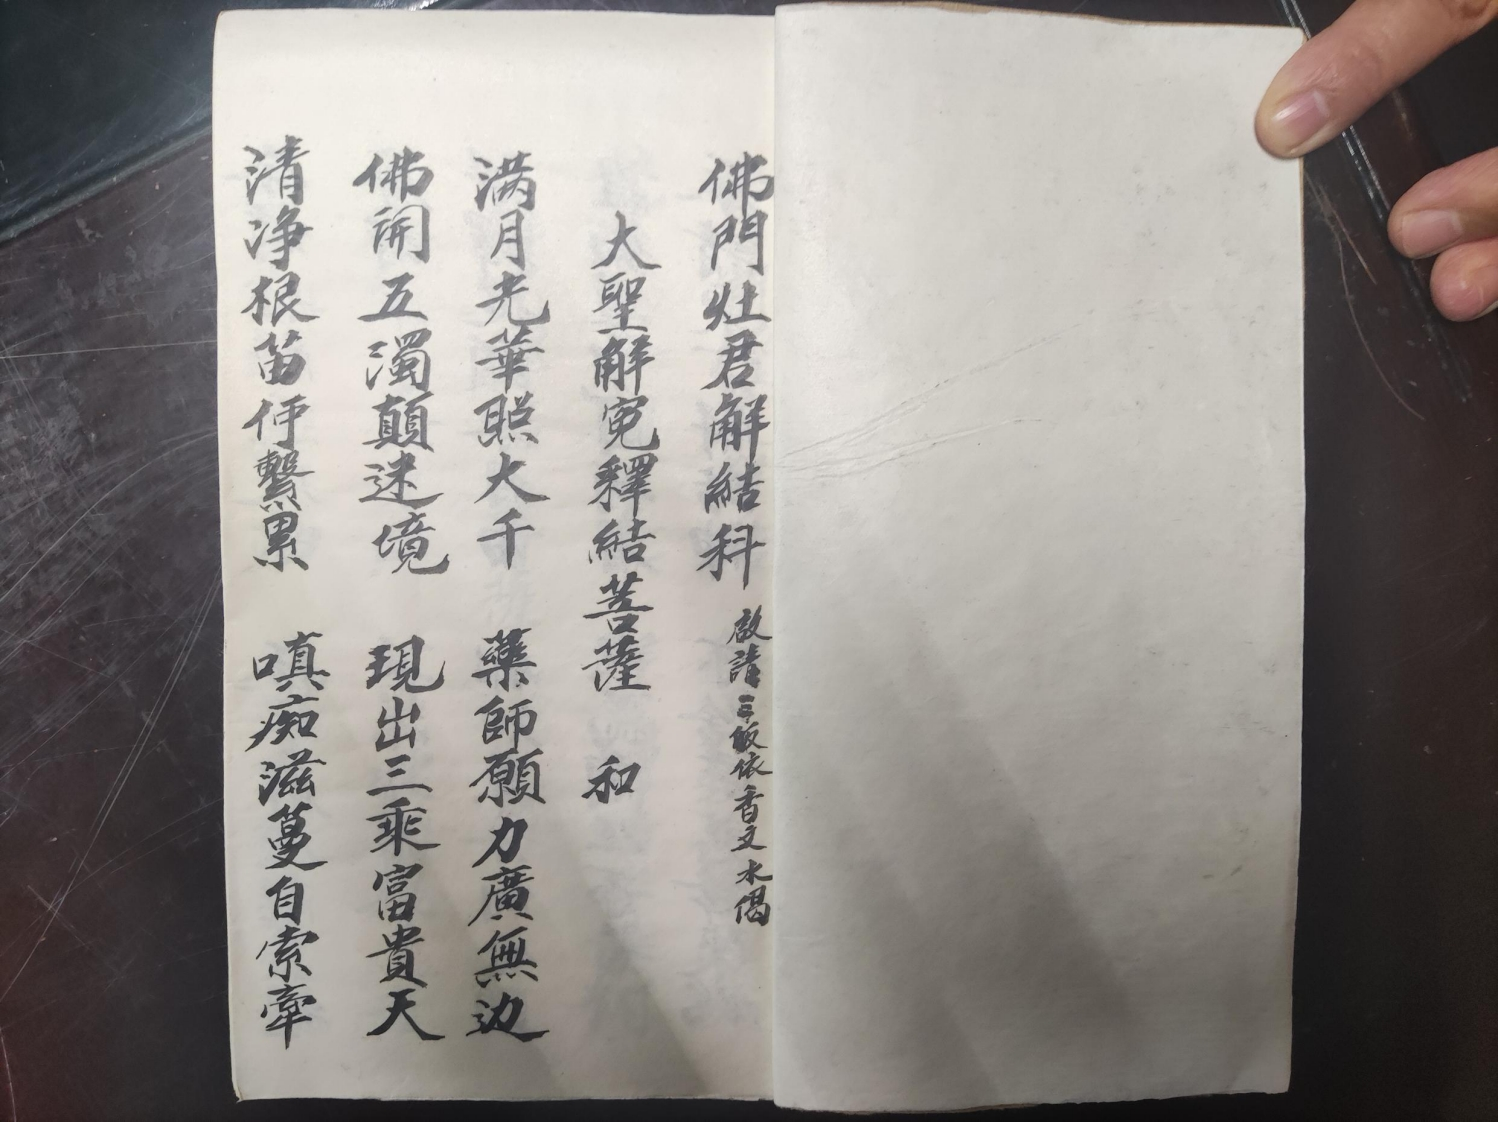 佛門灶君解結科 啟請三皈依香文水偈
大聖解冤釋結菩薩 和
满月光華照大千 藥師願力廣無边
佛開五濁顛迷境 現出三乘富貴天
清净根苗伻繫累 嗔痴滋蔓自索牽